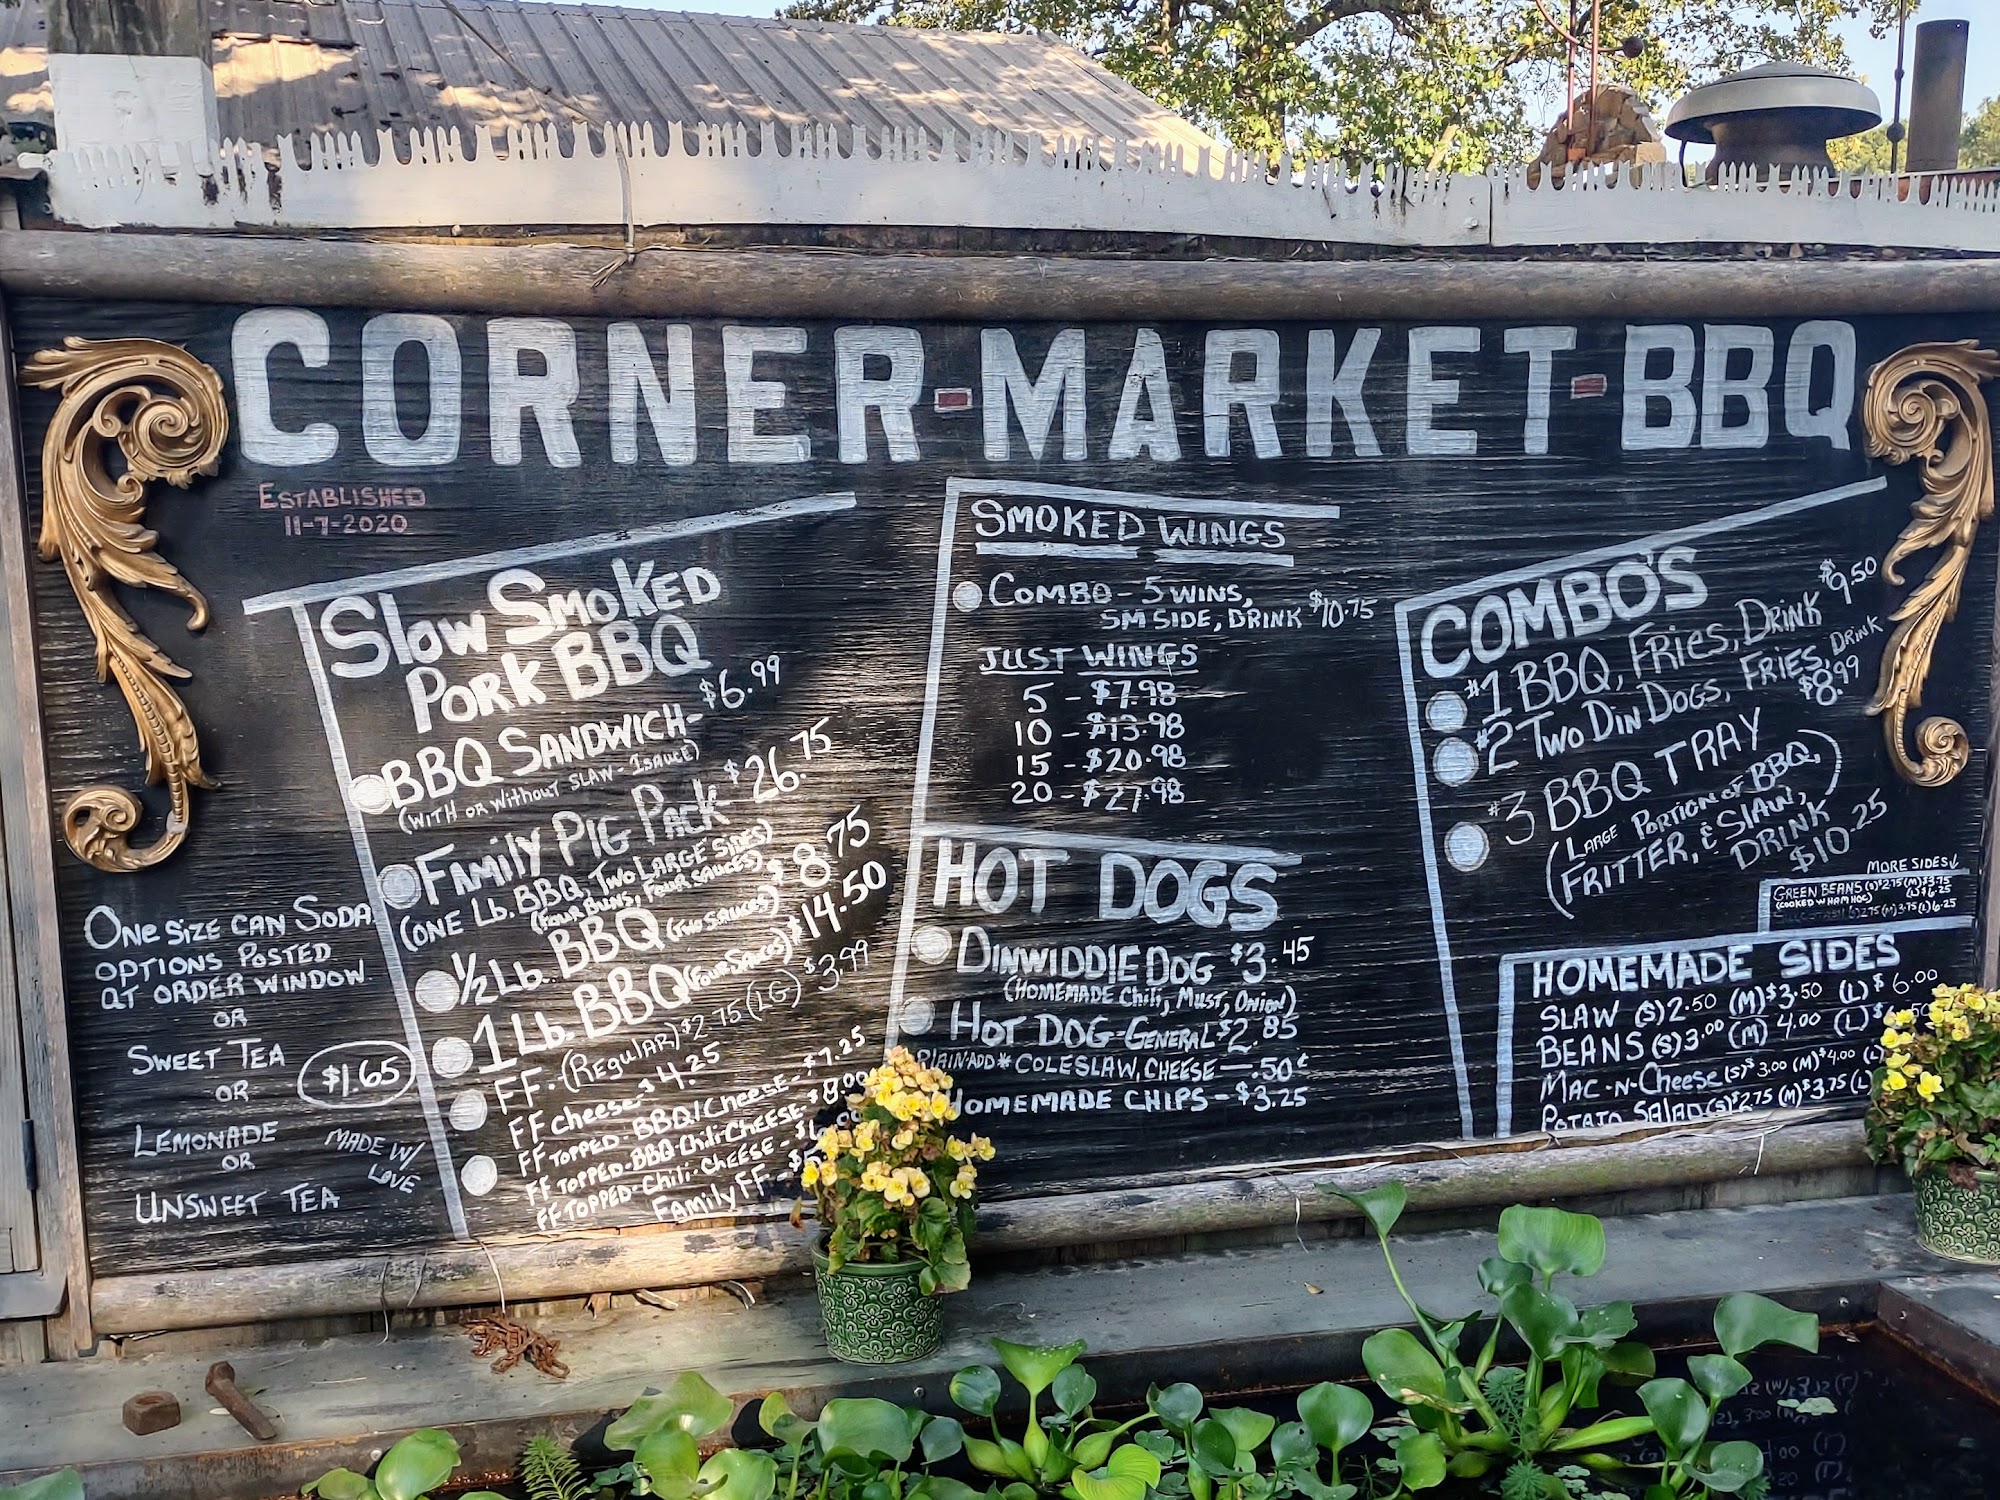 CORNER-MARKET-BBQ
ESTABLISHED
11-7-2020
Slow SMOKED
PORK BBQ
BBQ SANDWICH- $6.99
(WITH OR Without SLAW-1SAUCE)
FAMILY PIG PACK $26.75
(ONE Lb. BBQ, TWO LARGE SIDES)
(FOUR BUNS, FOUR SAUCES)
1/2 Lb. BBQ (TWO SAUCES) $8.75
1 Lb. BBQ (FOUR SAUCES) $14.50
FF-(REGULAR) $2.75 (LG) $3.99
FF CHEESE-$4.25
FF TOPPED-BBQ/CHEESE-$7.25
FF TOPPED-BBQ-CHILI CHEESE-$8.00
FF TOPPED-CHILI-CHEESE-
FAMILY FF-
ONE SIZE CAN SODA
OPTIONS POSTED
AT ORDER WINDOW
OR
SWEET TEA
OR
$1.65
LEMONADE
OR
MADE W/
LOVE
UNSWEET TEA
SMOKED WINGS
COMBO - 5 WINS,
SM SIDE, DRINK $10.75
JUST WINGS
5 - $7.98
10 - $13.98
15 - $20.98
20 - $27.98
HOT DOGS
DINWIDDIE DOG $3.45
(HOMEMADE Chili, MUST, ONION)
HOT DOG-GENERAL $2.85
PLAIN-ADD* COLESLAW, CHEESE —.50¢
HOMEMADE CHIPS - $3.25
COMBO'S
#1 BBQ, FRIES, DRINK $9.50
#2 TWO DIN DOGS, FRIES, DRINK
$8.99
#3 BBQ TRAY
(LARGE PORTION OF BBQ,
FRITTER, & SLAW,)
DRINK
$10.25
MORE SIDES↓
GREEN BEANS (S)$2.75 (M)$3.75
(COOKED W HAM HOC) (L)$6.25
HOMEMADE SIDES
SLAW (S)2.50 (M)$3.50 (L)$6.00
BEANS (S)3.00 (M) 4.00 (L)
MAC-N-CHEESE (S)$3.00 (M)$4.00 (L)
POTATO SALAD (S)$2.75 (M)$3.75 (L)